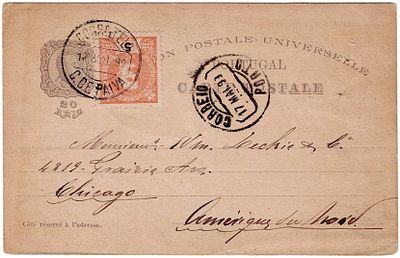 CORREIOS
C. DE PAIVA
UNION POSTALE UNIVERSELLE
PORTUGAL
CARTE POSTALE
20
REIS
CORREIO
17 MAI 93
PORTO
Monsieur Wm. Leckie & C.
4819 Prairie Av.
Chicago
Amérique du Nord.
Côté réservé à l'adresse.